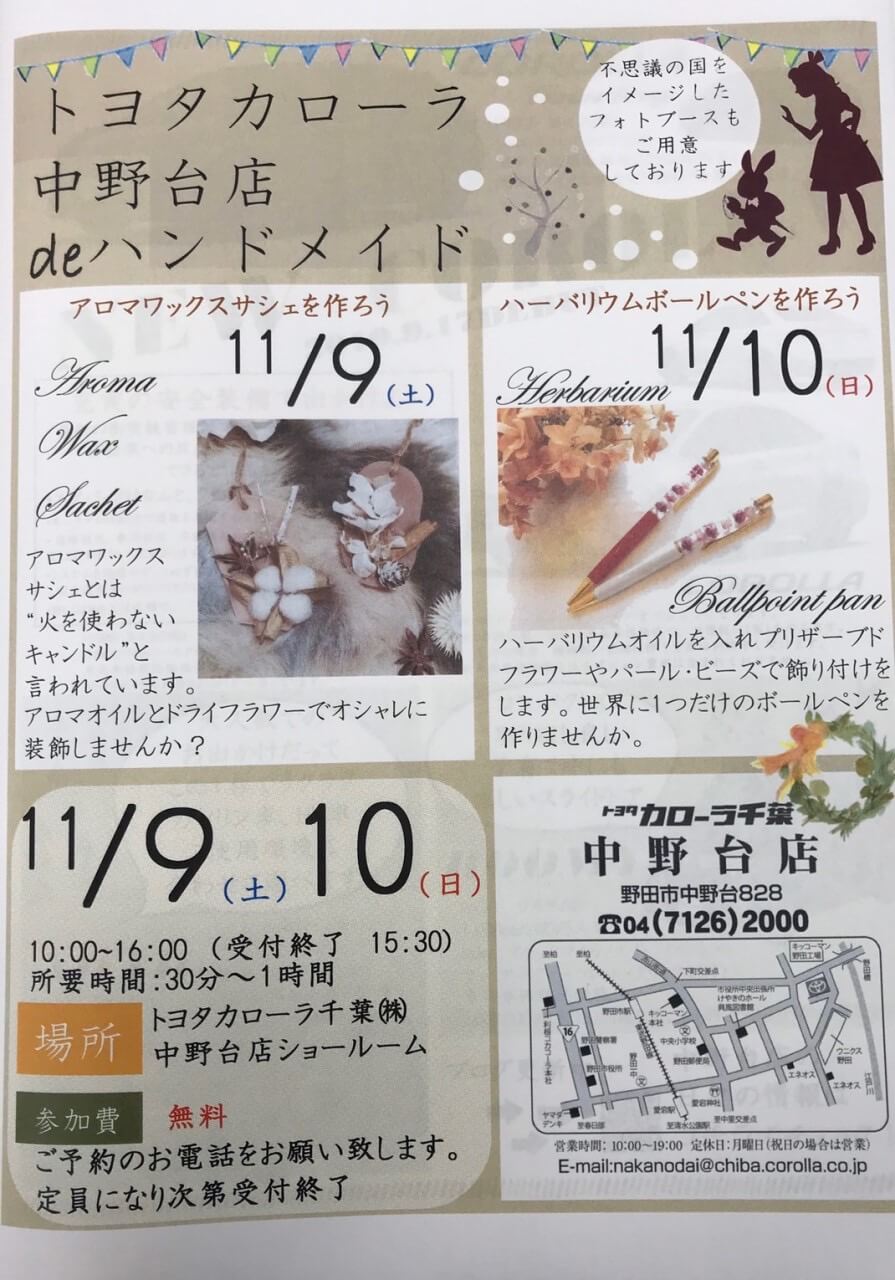 トヨタカローラ
中野台店
deハンドメイド
不思議の国を
イメージした
フォトブースも
ご用意
しております
アロマワックスサシェを作ろう
11/9(土)
Aroma
Wax
Sachet
アロマワックス
サシェとは
“火を使わない
キャンドル”と
言われています。
アロマオイルとドライフラワーでオシャレに
装飾しませんか？
ハーバリウムボールペンを作ろう
11/10(日)
Herbarium
Ballpoint pan
ハーバリウムオイルを入れプリザーブド
フラワーやパール・ビーズで飾り付けを
します。世界に1つだけのボールペンを
作りませんか。
11/9(土) 10(日)
10:00~16:00 (受付終了 15:30)
所要時間:30分～1時間
場所
トヨタカローラ千葉㈱
中野台店ショールーム
参加費 無料
ご予約のお電話をお願い致します。
定員になり次第受付終了
トヨタカローラ千葉
中野台店
野田市中野台828
☎04(7126)2000
至柏
至柏
下町交差点
キッコーマン
野田工場
野田橋
市役所中央出張所
けやきのホール
興風図書館
野田市駅
キッコーマン
本社
利根コカ・コーラ本社
16
野田警察署
中央小学校
野田市役所
野田二中
野田郵便局
ユニクス
野田
エネオス
エネオス
江戸川
ヤマダ
デンキ
至春日部
愛宕駅
愛宕神社
至清水公園駅
至中里交差点
営業時間: 10:00～19:00 定休日:月曜日(祝日の場合は営業)
E-mail:nakanodai@chiba.corolla.co.jp